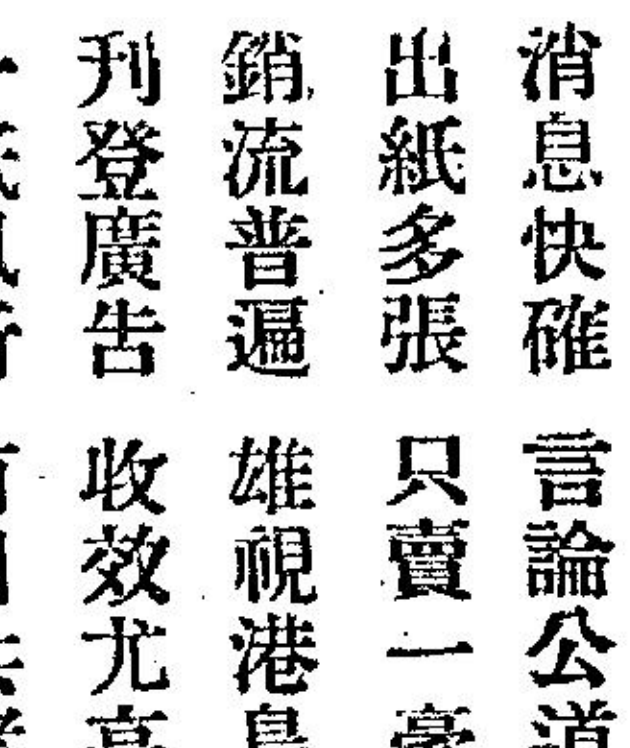 消息快確 言論公道
出紙多張 只賣一毫
銷流普遍 雄視港島
刊登廣告 收效尤高